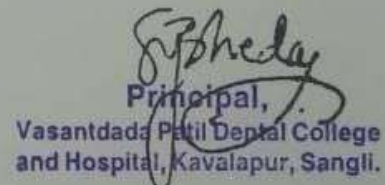 Principal,
Vasantdada Patil Dental College
and Hospital, Kavalapur, Sangli.